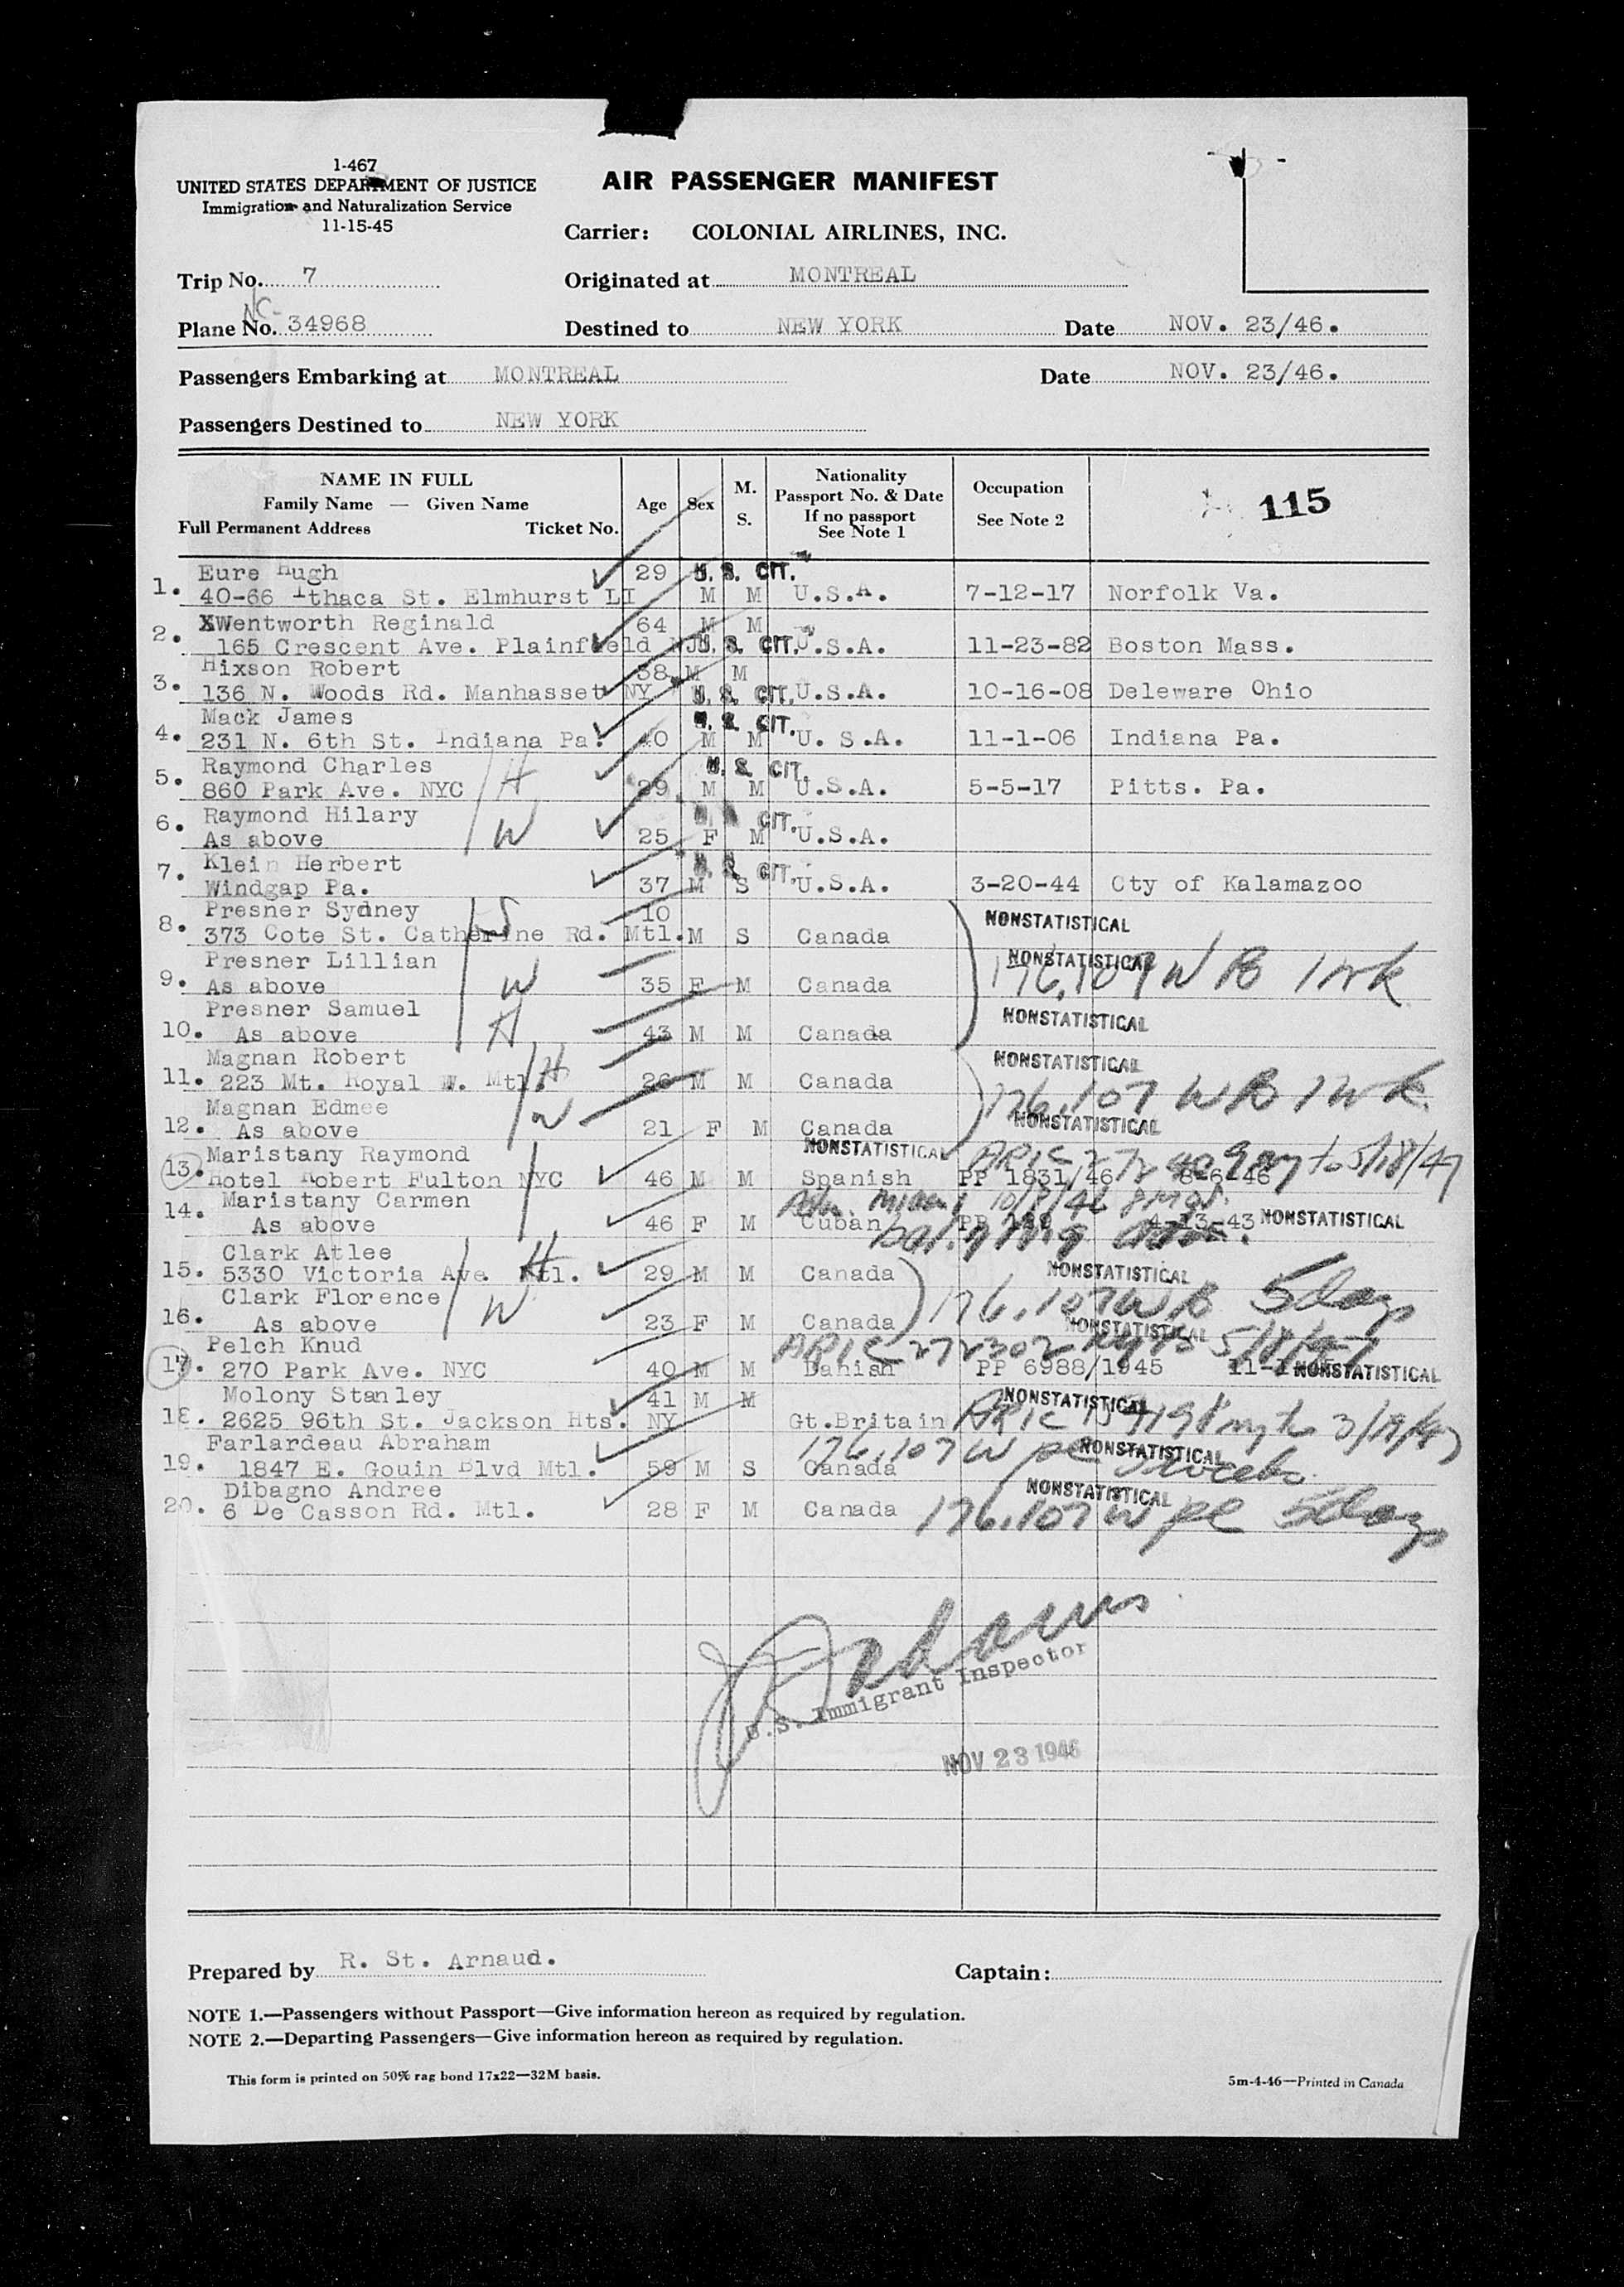 1-467
UNITED STATES DEPARTMENT OF JUSTICE
Immigration and Naturalization Service
11-15-45
AIR PASSENGER MANIFEST
Carrier: COLONIAL AIRLINES, INC.
Trip No. 7
Originated at MONTREAL
NC-
Plane No. 34968
Destined to NEW YORK
Date NOV. 23/46.
Passengers Embarking at MONTREAL
Date NOV. 23/46.
Passengers Destined to NEW YORK
NAME IN FULL
Family Name — Given Name
Full Permanent Address Ticket No.
Age
Sex
M.
S.
Nationality
Passport No. & Date
If no passport
See Note 1
Occupation
See Note 2
115
Eure Hugh 29 U. S. CIT.
1. 40-66 Ithaca St. Elmhurst LI M M U.S.A. 7-12-17 Norfolk Va.
XWentworth Reginald 64 M M
2. 165 Crescent Ave. Plainfield NJ U. S. CIT. U.S.A. 11-23-82 Boston Mass.
Hixson Robert 38 M M
3. 136 N. Woods Rd. Manhasset NY U. S. CIT. U.S.A. 10-16-08 Deleware Ohio
Mack James U. S. CIT.
4. 231 N. 6th St. Indiana Pa. 40 M M U. S.A. 11-1-06 Indiana Pa.
Raymond Charles U. S. CIT.
5. 860 Park Ave. NYC H 29 M M U.S.A. 5-5-17 Pitts. Pa.
Raymond Hilary CIT.
6. As above W 25 F M U.S.A.
Klein Herbert U. S. CIT.
7. Windgap Pa. 37 M S U.S.A. 3-20-44 Cty of Kalamazoo
Presner Sydney S 10 NONSTATISTICAL
8. 373 Cote St. Catherine Rd. Mtl. M S Canada
Presner Lillian NONSTATISTICAL
9. As above W 35 F M Canada 176.107 W B 1 wk
Presner Samuel NONSTATISTICAL
10. As above H 43 M M Canada
Magnan Robert NONSTATISTICAL
11. 223 Mt. Royal W. Mtl. H 26 M M Canada
Magnan Edmee 176.107 W B 1 wk
12. As above W 21 F M Canada NONSTATISTICAL
Maristany Raymond NONSTATISTICAL
13. Hotel Robert Fulton NYC 46 M M Spanish PP 1831/46 8-6-46
Maristany Carmen
14. As above 46 F M Cuban PP 4-13-43 NONSTATISTICAL
Clark Atlee
15. 5330 Victoria Ave. Mtl. H 29 M M Canada NONSTATISTICAL
Clark Florence W 176.107 W B 5 days
16. As above 23 F M Canada NONSTATISTICAL
Pelch Knud
17. 270 Park Ave. NYC 40 M M Danish PP 6988/1945 NONSTATISTICAL
Molony Stanley 41 M M NONSTATISTICAL
18. 2625 96th St. Jackson Hts. NY Gt.Britain
Farlardeau Abraham 176.107 W NONSTATISTICAL
19. 1847 E. Gouin Blvd Mtl. 59 M S Canada
Dibagno Andree NONSTATISTICAL
20. 6 De Casson Rd. Mtl. 28 F M Canada 176.107 W pl 5 days
U.S. Immigrant Inspector
NOV 23 1946
Prepared by R. St. Arnaud.
Captain:
NOTE 1.—Passengers without Passport—Give information hereon as required by regulation.
NOTE 2.—Departing Passengers—Give information hereon as required by regulation.
This form is printed on 50% rag bond 17x22—32M basis.
5m-4-46—Printed in Canada